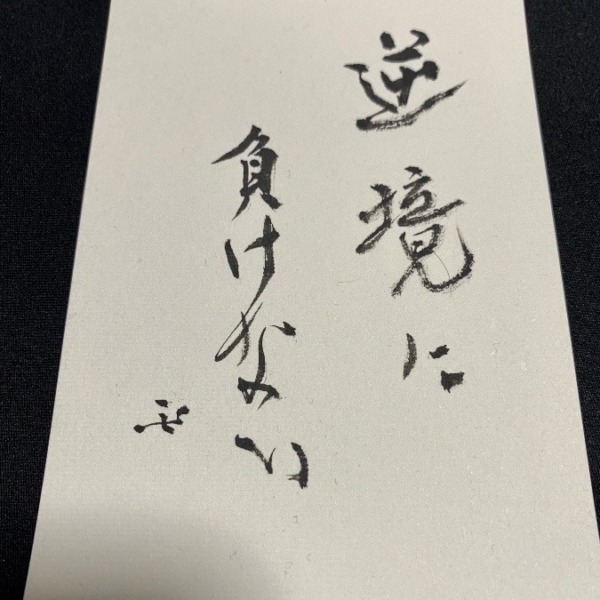 逆境に
負けない